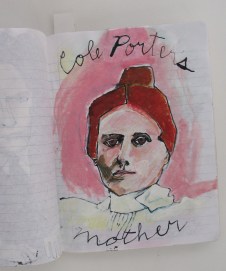 Cole Porters
mother